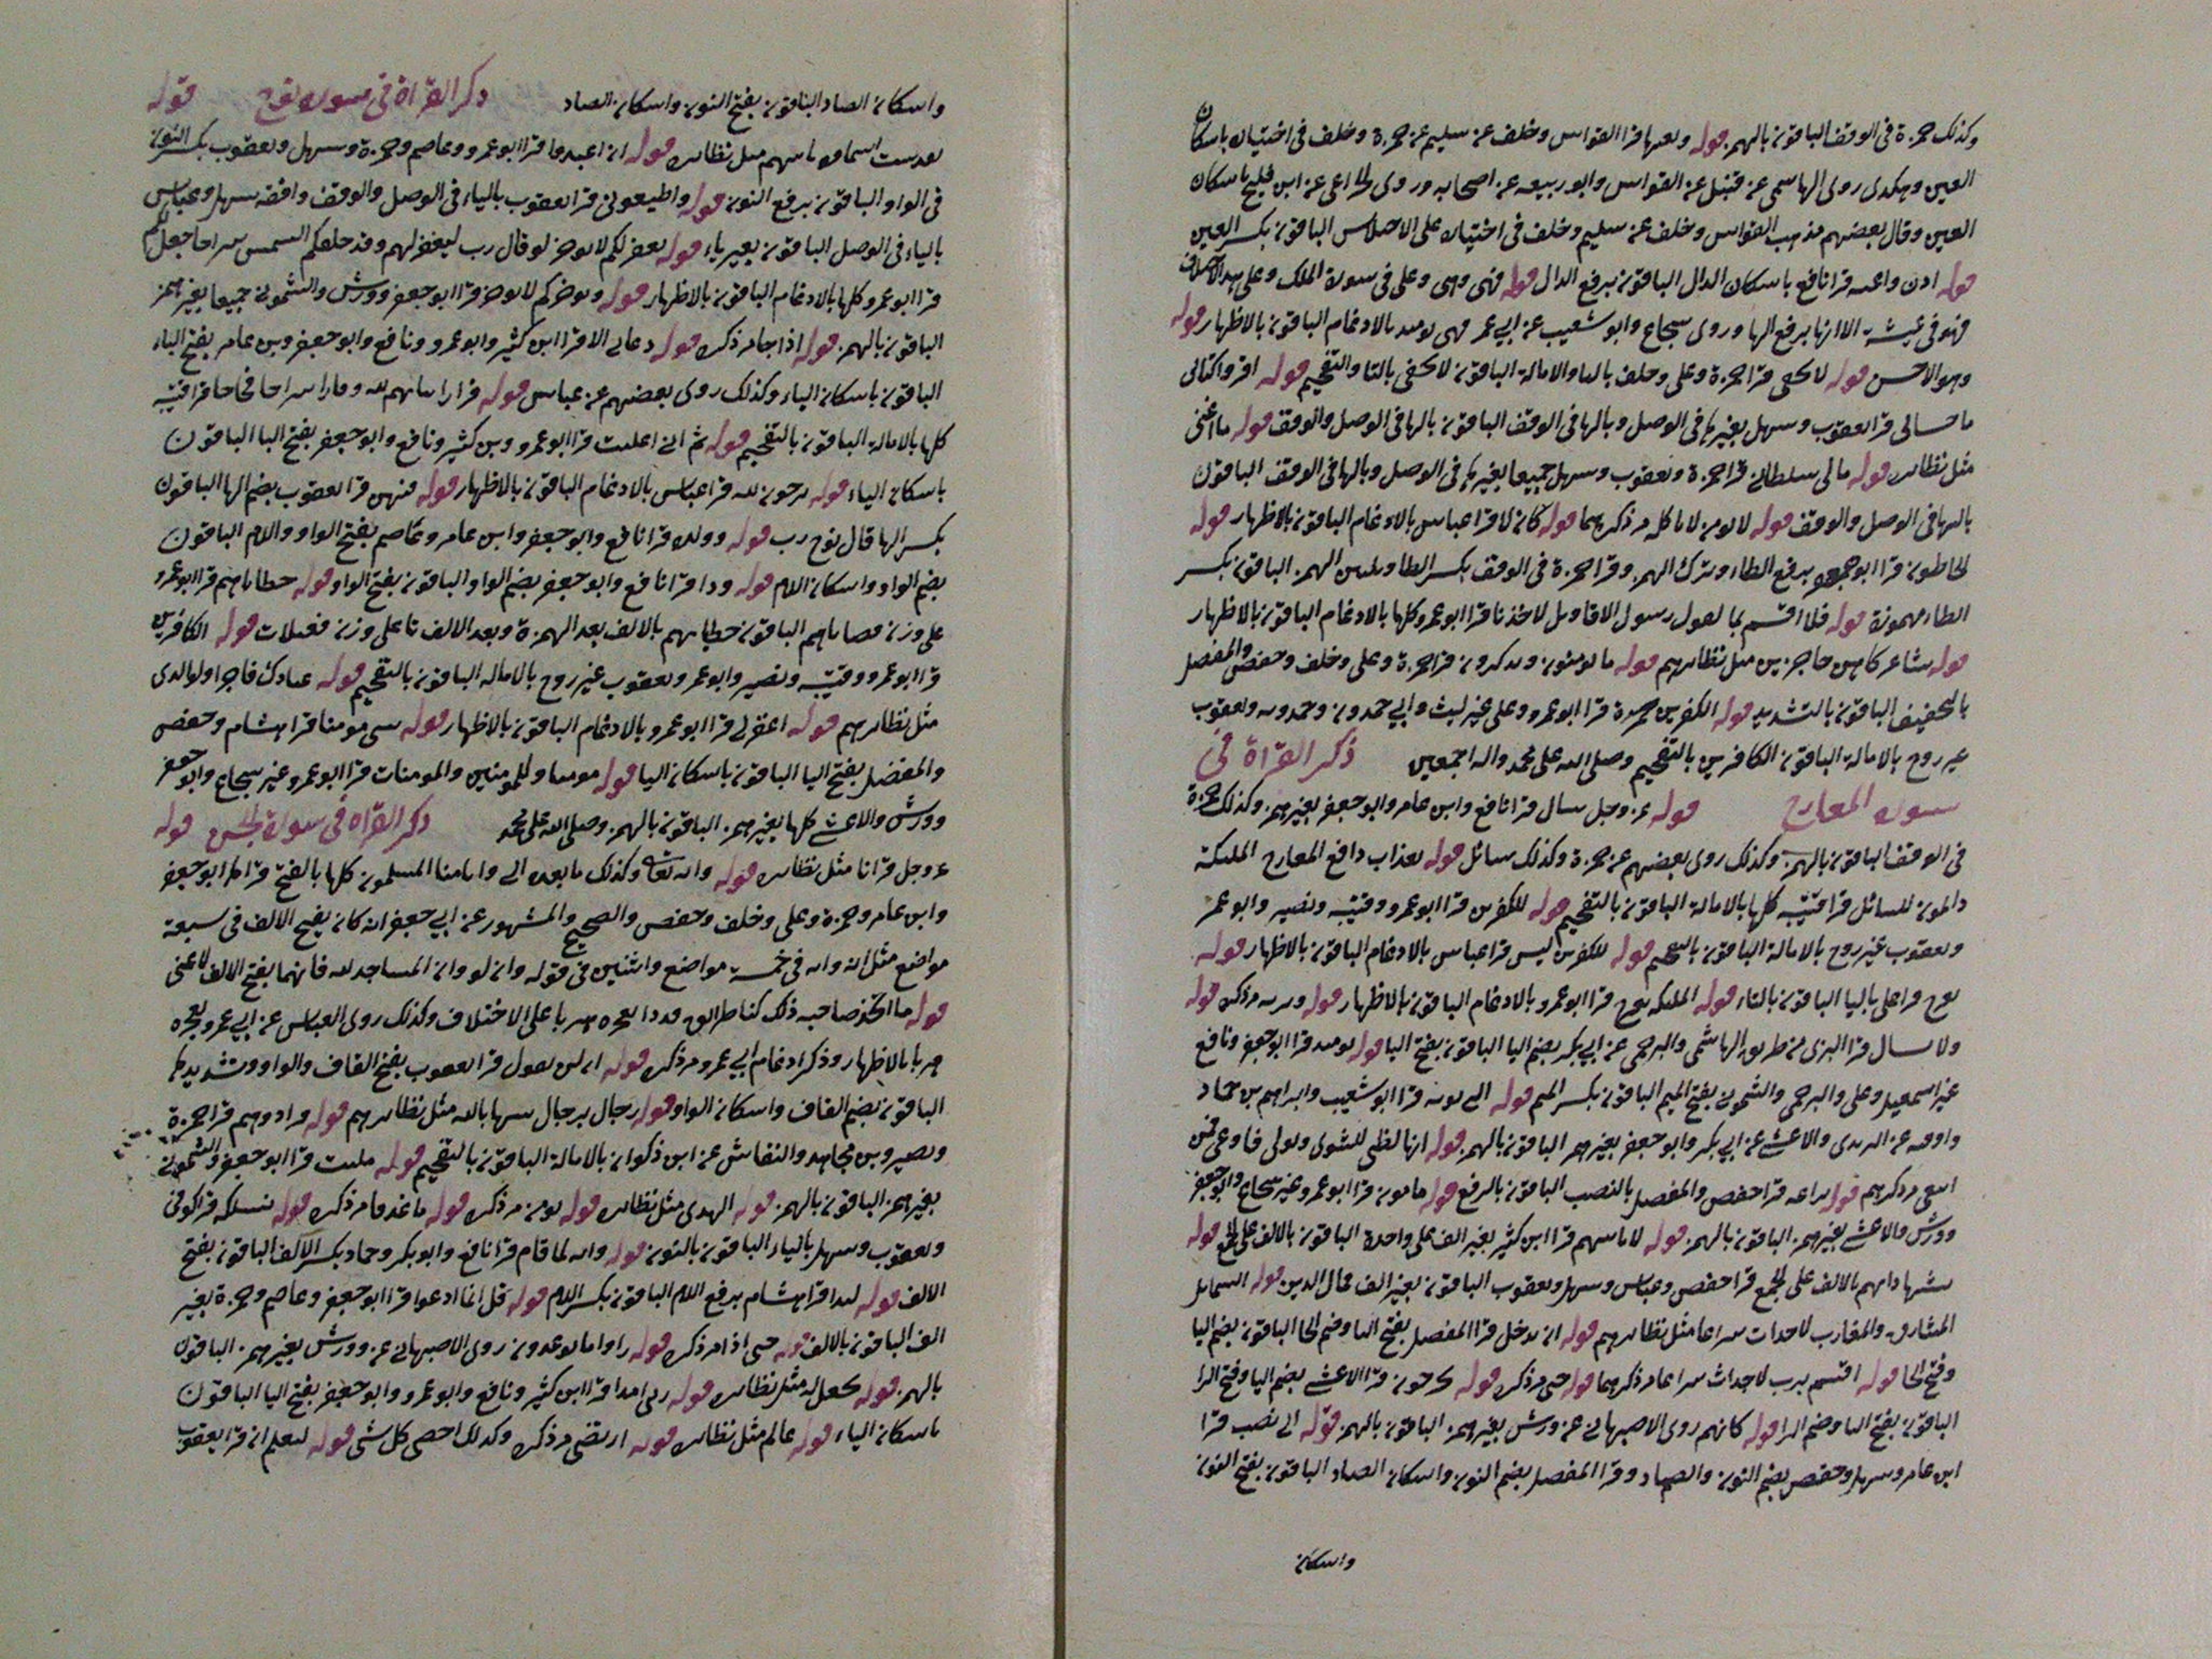 وكذلك حمزة في الوقف الباقون بالهمز قوله وتعيها قرا القواس وخلف عن سليم عن حمزة وخلف في اختياره باسكان
العين وهكذى روى الهاشمي عن قنبل عن القواس وابو ربيعه عن اصحابه وروى عن ابن فليح باسكان
العين وقال بعضهم مذهب القواس وخلف عن سليم وخلف في اختياره على الاختلاس الباقون بكسر العين
قوله اذن واعيه قرا نافع باسكان الذال الباقون برفع الذال قوله فهي وهي وعلى في سورة الملك وعلى
فهو في عيشة الا انها برفع الها وروى شجاع وابو شعيب عن ابي عمر فهي يومئذ بالادغام الباقون بالاظهار قوله
وهو الاحسن قوله لا تخفى قرا حمزة وعلى وخلف باليا والامالة الباقون لا تخفى بالتا والتفخيم قوله اقرؤا كتابى
ما حسابى قرا يعقوب وسهل بغير ها في الوصل وبالها في الوقف الباقون بالها في الوصل والوقف قوله ما اغنى
مثل نظايره قوله مالى سلطانى قرا حمزة ويعقوب وسهل جميعا بغير ها في الوصل وبالها في الوقف الباقون
بالها في الوصل والوقف قوله لا يومن لا ياكله مر ذكرهما قوله كانه لا قرا عباس بالادغام الباقون بالاظهار قوله
الخاطون قرا ابو جعفر برفع الطاء وترك الهمز وقرا حمزة في الوقف بكسر الطا وتليين الهمز الباقون بكسر
الطاء مهموزة قوله فلا اقسم بما لقول رسول الاقاويل لاخذنا قرا ابو عمرو كلها بالادغام الباقون بالاظهار
قوله شاعر كاهن حاجزين مثل نظايرهم قوله ما يومنون ويذكرون قرا حمزة وعلى وخلف وحفص والمفضل
بالتخفيف الباقون بالتشديد قوله الكفرين حسرة قرا ابو عمرو وعلى غير ليث وابي حمدون وحمدويه ويعقوب
غير روح بالامالة الباقون الكافرين بالتفخيم وصلى الله على محمد واله اجمعين ذكر القراة في
سورة المعارج قوله عز وجل سال قرا نافع وابن عامر وابو جعفر بغير همز وكذلك حمزة
في الوقف الباقون بالهمز وكذلك روى بعضهم عن حمزة وكذلك سائل قوله بعذاب دافع المعارج الملئكة
دائمون للسائل قرا قتيبه كلها بالامالة الباقون بالتفخيم قوله للكفرين قرا ابو عمرو وقتيبه ونصير وابو عمر
ويعقوب غير روح بالامالة الباقون بالتفخيم قوله للكفرين ليس قرا عباس بالادغام الباقون بالاظهار قوله
يعرج قرا على باليا الباقون بالتاء قوله الملئكه تعرج قرا ابو عمرو بالادغام الباقون بالاظهار قوله ونريه مر ذكره قوله
ولا يسال قرا البزى من طريق الهاشمي والبرجمي عن ابي بكر بضم اليا الباقون بفتح اليا قوله يومئذ قرا ابو جعفر ونافع
غير اسمعيل وعلى والبرجمي والشموني بفتح الميم الباقون بكسر الميم قوله التى تويه قرا ابو شعيب وابراهيم بن حماد
واوقيه عن اليزيدى والاعشى عن ابي بكر وابو جعفر بغير همز الباقون بالهمز قوله انها لظى للشوى وتولى فاوعى فمن
ابتغى مر ذكرهم قوله نزاعه قرا حفص والمفضل بالنصب الباقون بالرفع قوله مامون قرا ابو عمرو غير شجاع وابو جعفر
وورش والاعشى بغير همز الباقون بالهمز قوله لاماناتهم قرا ابن كثير بغير الف على واحدة الباقون بالالف على الجمع قوله
بشهاداتهم بالالف على الجمع قرا حفص وعباس وسهل ويعقوب الباقون بغير الف فمال الذين قوله الشمائل
المشارق والمغارب الاجداث سراعا مثل نظايرهم قوله ان يدخل قرا المفضل بفتح اليا وضم الخا الباقون بضم اليا
وفتح الخا قوله اقسم برب الاجداث سراعا مر ذكرهما قوله حتى مر ذكره قوله يخرجون قرا الاعشى بضم اليا وفتح الرا
الباقون بفتح اليا وضم الرا قوله كانهم روى الاصبهاني عن ورش بغير همز الباقون بالهمز قوله الى نصب قرا
ابن عامر وسهل وحفص بضم النون والصاد وقرا المفضل بضم النون واسكان الصاد الباقون بفتح النون
واسكان
واسكان الصاد الباقون بفتح النون واسكان الصاد ذكر القراة في سورة نوح قوله
قوله ان اعبدوا قرا ابو عمرو وعاصم وحمزة وسهل ويعقوب بكسر النون
في الواو الباقون برفع النون قوله واطيعونى قرا يعقوب بالياء في الوصل والوقف وافقه سهل وعباس
بالياء في الوصل الباقون بغير ياء قوله يغفر لكم لا يوخر لو قال رب ليغفر لهم وقد خلقكم الشمس سراجا جعل لكم
قرا ابو عمرو كلها بالادغام الباقون بالاظهار قوله ويوخركم لا يوخر قرا ابو جعفر وورش والشموني جميعا بغير همز
الباقون بالهمز قوله اذا جا مر ذكره قوله دعاءى الا قرا ابن كثير وابو عمرو ونافع وابو جعفر وبن عامر بفتح الياء
الباقون باسكان الياء وكذلك روى بعضهم عن عباس قوله فرارا اذانهم لله وقارا سراجا فجاجا قرا قتيبه
كلها بالامالة الباقون بالتفخيم قوله ثم انى اعلنت قرا ابو عمرو وبن كثير ونافع وابو جعفر بفتح اليا الباقون
باسكان الياء قوله ترجون لله قرا عباس بالادغام الباقون بالاظهار قوله فيهن قرا يعقوب بضم الها الباقون
بكسر الها قال نوح رب قوله وولده قرا نافع وابو جعفر وابن عامر وعاصم بفتح الواو واللام الباقون
بضم الواو واسكان اللام قوله ودا قرا نافع وابو جعفر بضم الواو الباقون بفتح الواو قوله خطاياهم قرا ابو عمرو
على وزن قضاياهم الباقون خطياتهم بالالف بعد الهمزة وبعد الالف تا على وزن فعيلات قوله الكافرين
قرا ابو عمرو وقتيبه ونصير وابو عمر ويعقوب غير روح بالاماله الباقون بالتفخيم قوله عبادك فاجرا ولوالدى
مثل نظايرهم قوله اغفر لى قرا ابو عمرو بالادغام الباقون بالاظهار قوله بيتى مومنا قرا هشام وحفص
والمفضل بفتح اليا الباقون باسكان اليا قوله مومنا وللمومنين والمومنات قرا ابو عمرو غير شجاع وابو جعفر
وورش والاعشى كلها بغير همز الباقون بالهمز وصلى الله على محمد ذكر القراة في سورة الجن قوله
عز وجل قرانا مثل نظايره قوله وانه تعالى وكذلك ما بعده الى وانا منا المسلمون كلها بالفتح قرا ابو جعفر
وابن عامر وحمزة وعلى وخلف وحفص والصحيح والمشهور عن ابي جعفر انه كان يفتح الالف في سبعة
مواضع مثل انه وانه في خمسة مواضع واثنين في قوله وان لو وان المساجد لله فانهما بفتح الالف
قوله ما اتخذ صاحبه ذلك كنا طرائق قددا نعجزه هربا على الاختلاف وكذلك روى العباس عن ابي عمرو نعجزه
هربا بالاظهار وذكر ادغام ابي عمرو مر ذكره قوله ان لن تقول قرا يعقوب بفتح القاف والواو وتشديدها
الباقون بضم القاف واسكان الواو قوله رجال برجال شهابا لله مثل نظايرهم قوله فزادوهم قرا حمزة
ونصير وبن مجاهد والنقاش عن ابن ذكوان بالامالة الباقون بالتفخيم قوله ملئت قرا ابو جعفر والشموني
بغير همز الباقون بالهمز قوله الهدى مثل نظايره قوله يومن مر ذكره قوله ماء غدقا مر ذكره قوله نسلكه قرا كوفي
ويعقوب وسهل بالياء الباقون بالنون قوله وانه لما قام قرا نافع وابو بكر وحماد بكسر الالف الباقون بفتح
الالف قوله لبدا قرا هشام برفع اللام الباقون بكسر اللام قوله قل انما ادعوا قرا ابو جعفر وعاصم وحمزة بغير
الف الباقون بالالف قوله حتى اذا مر ذكره قوله راوا ما يوعدون روى الاصبهاني عن وورش بغير همز الباقون
بالهمز قوله يجعل له مثل نظايره قوله ربى امدا قرا ابن كثير ونافع وابو عمرو وابو جعفر بفتح اليا الباقون
باسكان الياء قوله عالم مثل نظايره قوله ارتضى مر ذكره وكذلك احصى كل شى قوله ليعلم ان قرا يعقوب